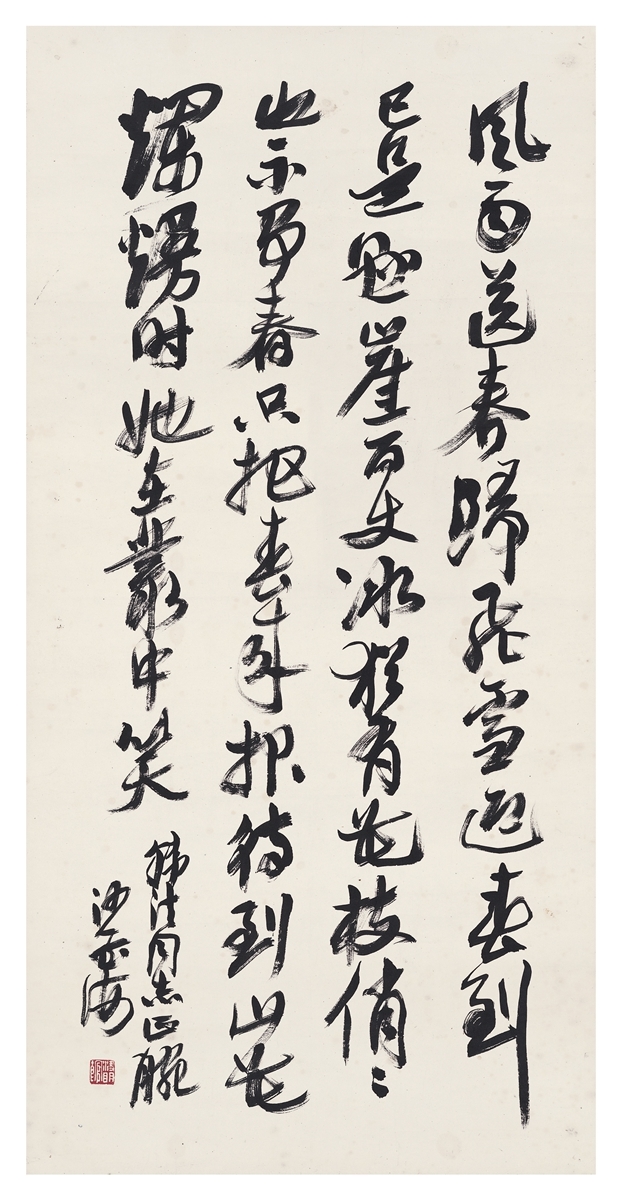 风雨送春歸飞雪迎春到
已是悬崖百丈冰猶有花枝俏〻
也不争春只把春来报待到山花
爛熳时她在叢中笑
同志正腕
沙孟海